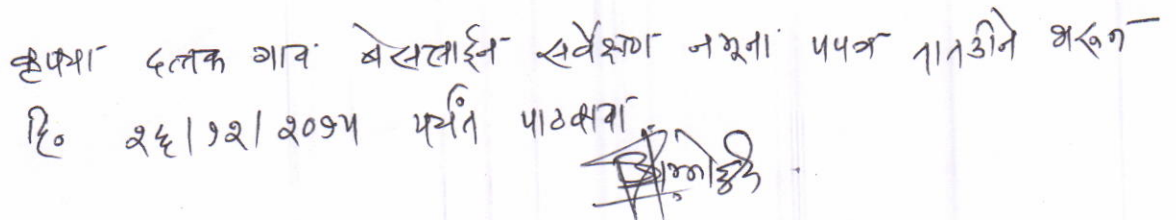 कृपया दत्तक गाव बेसलाईन सर्वेक्षण नमूना प्रपत्र तातडीने भरून
दि. २६/१२/२०१५ पर्यंत पाठवावा.